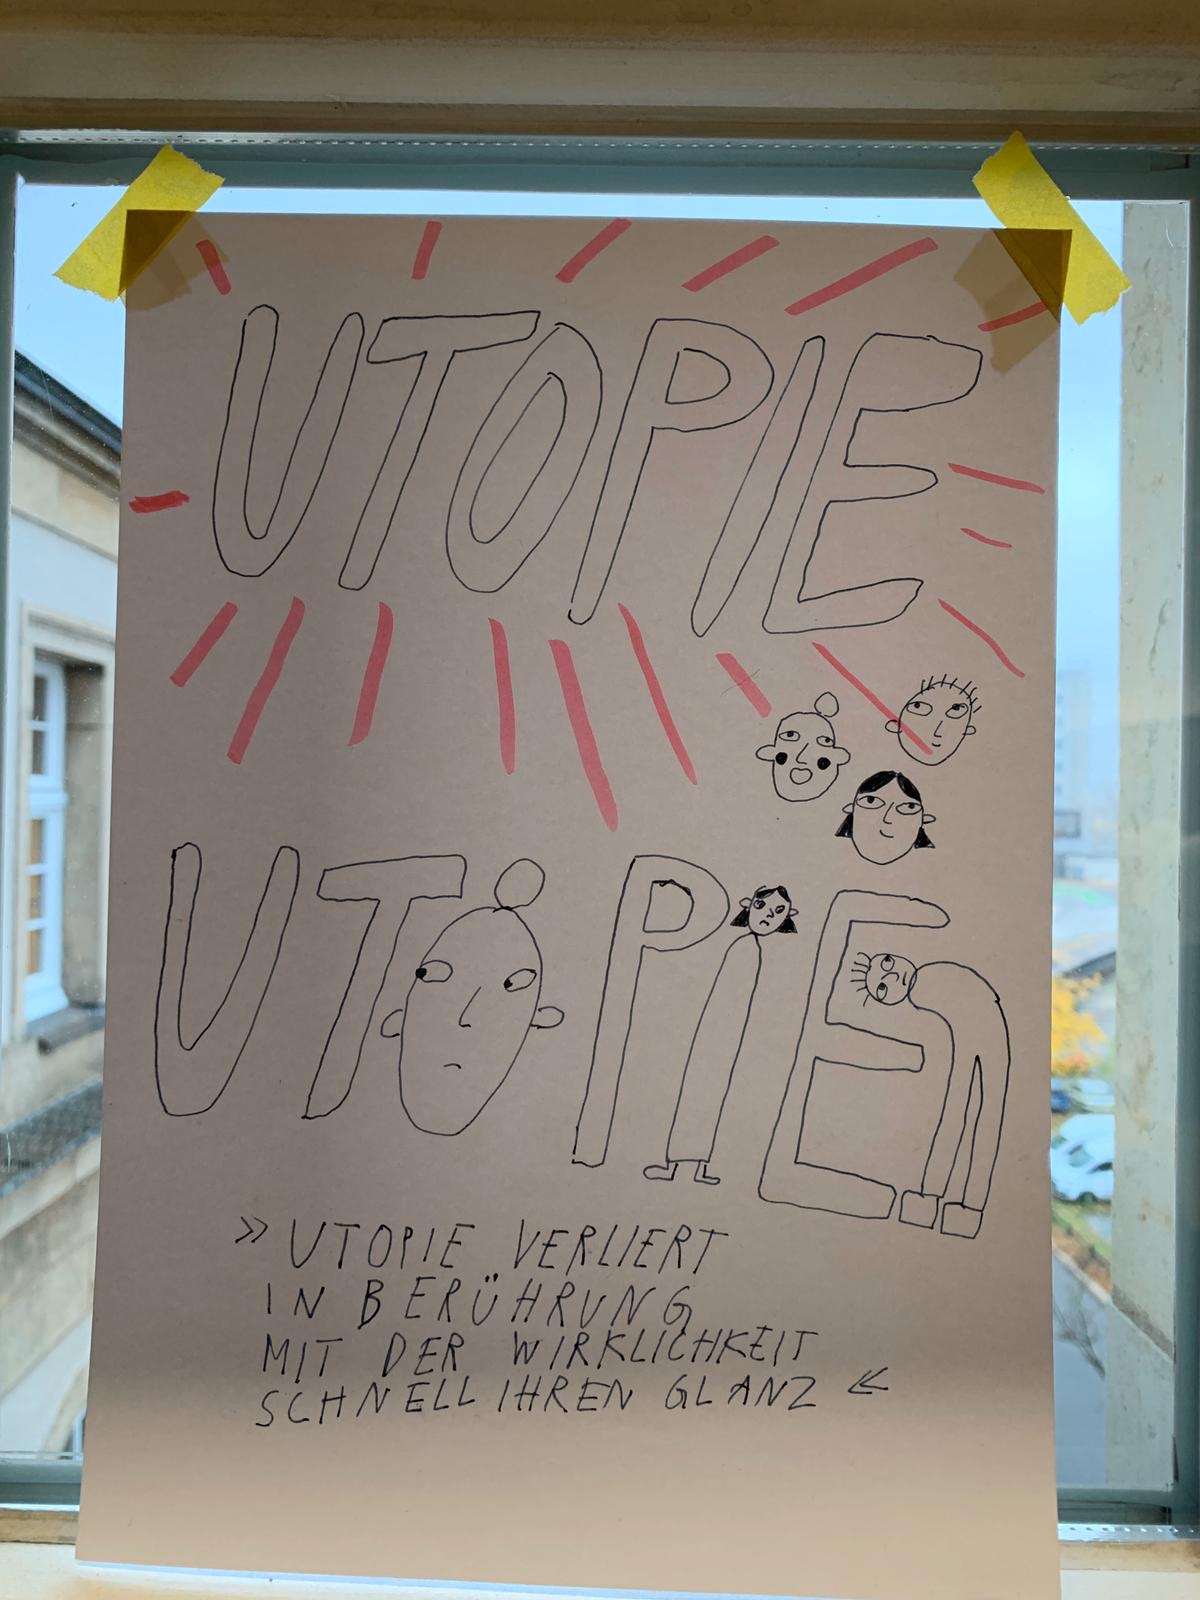 UTOPIE
UTOPIE
»UTOPIE VERLIERT
IN BERÜHRUNG
MIT DER WIRKLICHKEIT
SCHNELL IHREN GLANZ «